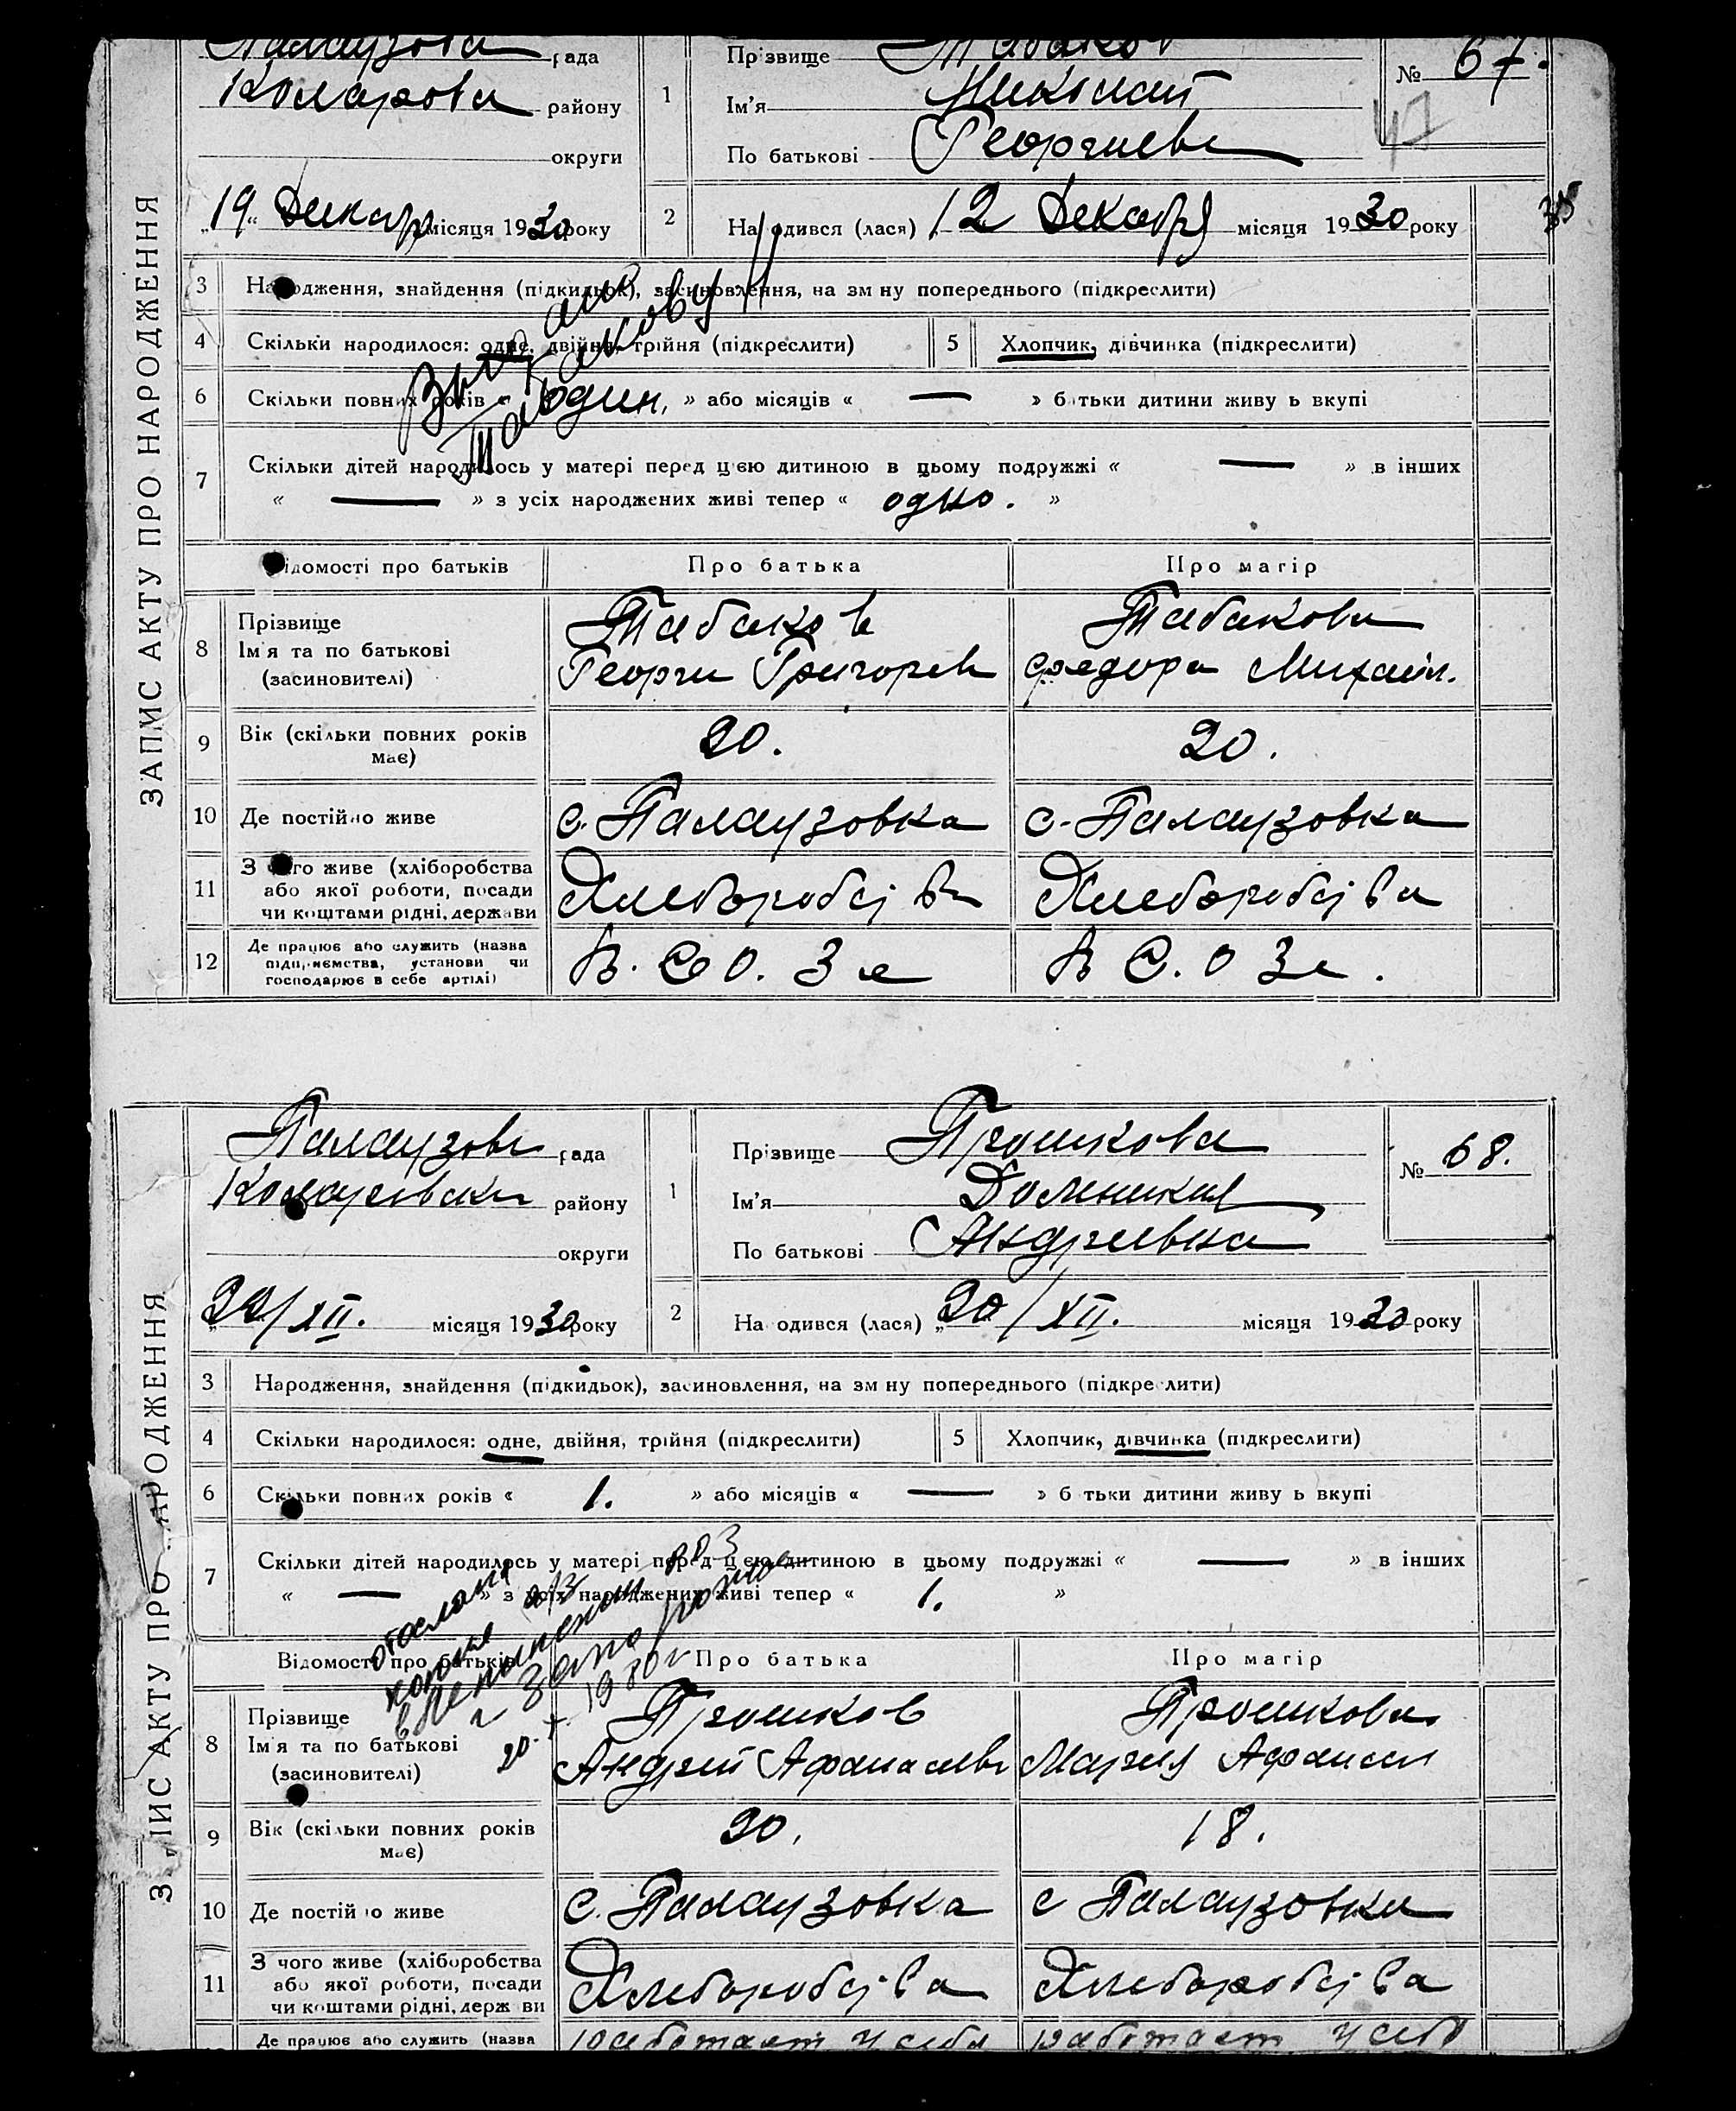 ЗАПИС АКТУ ПРО НАРОДЖЕННЯ
рада
району
округи
„19“ Декабр місяця 1930 року
1
Прізвище Табаков
Ім'я Николай
По батькові Георгиевич
№ 67.
2
Народився (лася) 12 Декабря місяця 1930 року
3 Народження, знайдення (підкидьок), засиновлення, на зміну попереднього (підкреслити)
4 Скільки народилося: одне, двійня, трійня (підкреслити)
5 Хлопчик, дівчинка (підкреслити)
6 Скільки повних років « один, » або місяців « — » батьки дитини живуть вкупі
7 Скільки дітей народилось у матері перед цією дитиною в цьому подружжі « — » в інших
« — » з усіх народжених живі тепер « одно. »
Табакову
Відомості про батьків
Про батька
Про матір
8 Прізвище
Ім'я та по батькові
(засиновителі)
Табаков
Георги Григорев
Табакова
Федора Михаил.
9 Вік (скільки повних років
має)
20.
20.
10 Де постійно живе
с. Палаузовка
с. Палаузовка
11 З чого живе (хліборобства
або якої роботи, посади
чи коштами рідні, держави
Хлеборобства
Хлеборобства
12 Де працює або служить (назва
підприємства, установи чи
господарює в себе артілі)
В. С О. З е
В С. О З е.
ЗАПИС АКТУ ПРО НАРОДЖЕННЯ
рада
району
округи
„22/XII. місяця 1930 року
1
Прізвище Прошкова
Ім'я Доминикия
По батькові Андреевна
№ 68.
2
Народився (лася) „20/XII. місяця 1930 року
3 Народження, знайдення (підкидьок), засиновлення, на зміну попереднього (підкреслити)
4 Скільки народилося: одне, двійня, трійня (підкреслити)
5 Хлопчик, дівчинка (підкреслити)
6 Скільки повних років « 1. » або місяців « — » батьки дитини живуть вкупі
7 Скільки дітей народилось у матері перед цією дитиною в цьому подружжі « — » в інших
« — » з усіх народжених живі тепер « 1. »
отослана
копия а/з
в Ленинский
г Запорожье
1980 г
Відомості про батьків
Про батька
Про матір
8 Прізвище
Ім'я та по батькові
(засиновителі)
Прошков
Андрей Афанасиев
Прошкова
Мария Афанаси
9 Вік (скільки повних років
має)
20.
18.
10 Де постійно живе
с. Палаузовка
с Палаузовка
11 З чого живе (хліборобства
або якої роботи, посади
чи коштами рідні, держави
Хлеборобства
Хлеборобства
Де працює або служить (назва
работает у себя
работает у себя